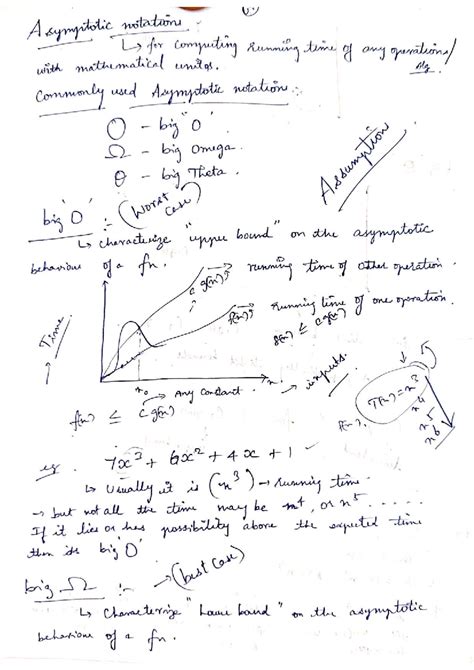 Asymptotic notations:
↳ for computing running time of any operations/
with mathematical units. Alg.
Commonly used Asymptotic notation:-
O - big "O"
Ω - big Omega.
Θ - big Theta.
Assumption
big 'O' :- (Worst case)
↳ characterize "upper bound" on the asymptotic
behaviour of a fn.
c g(n) → running time of other operation.
f(n) → running time of one operation.
f(n) ≤ c g(n)
Time
n₀ → Any constant. n → inputs.
T(n) = n³
n⁴
n⁵
n⁶
f(n).
f(n) ≤ c g(n)
eg. 7x³ + 6x² + 4x + 1
↳ Usually it is (n³) → running time.
→ but not all the time may be n⁴, or n⁵ .....
If it lies or has possibility above the expected time
then its big 'O'
big Ω :- → (best case)
↳ Characterize "Lower bound" on the asymptotic
behaviour of a fn.